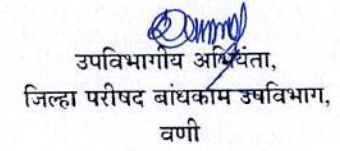 उपविभागीय अभियंता,
जिल्हा परीषद बांधकाम उपविभाग,
वणी